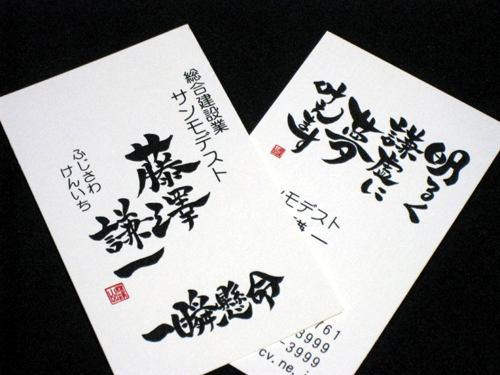 総合建設業
サンモデスト
藤澤謙一
ふじさわ
けんいち
一瞬懸命
明るく
謙虚に
夢
ンモデスト
761
3999
3999
cv.ne.